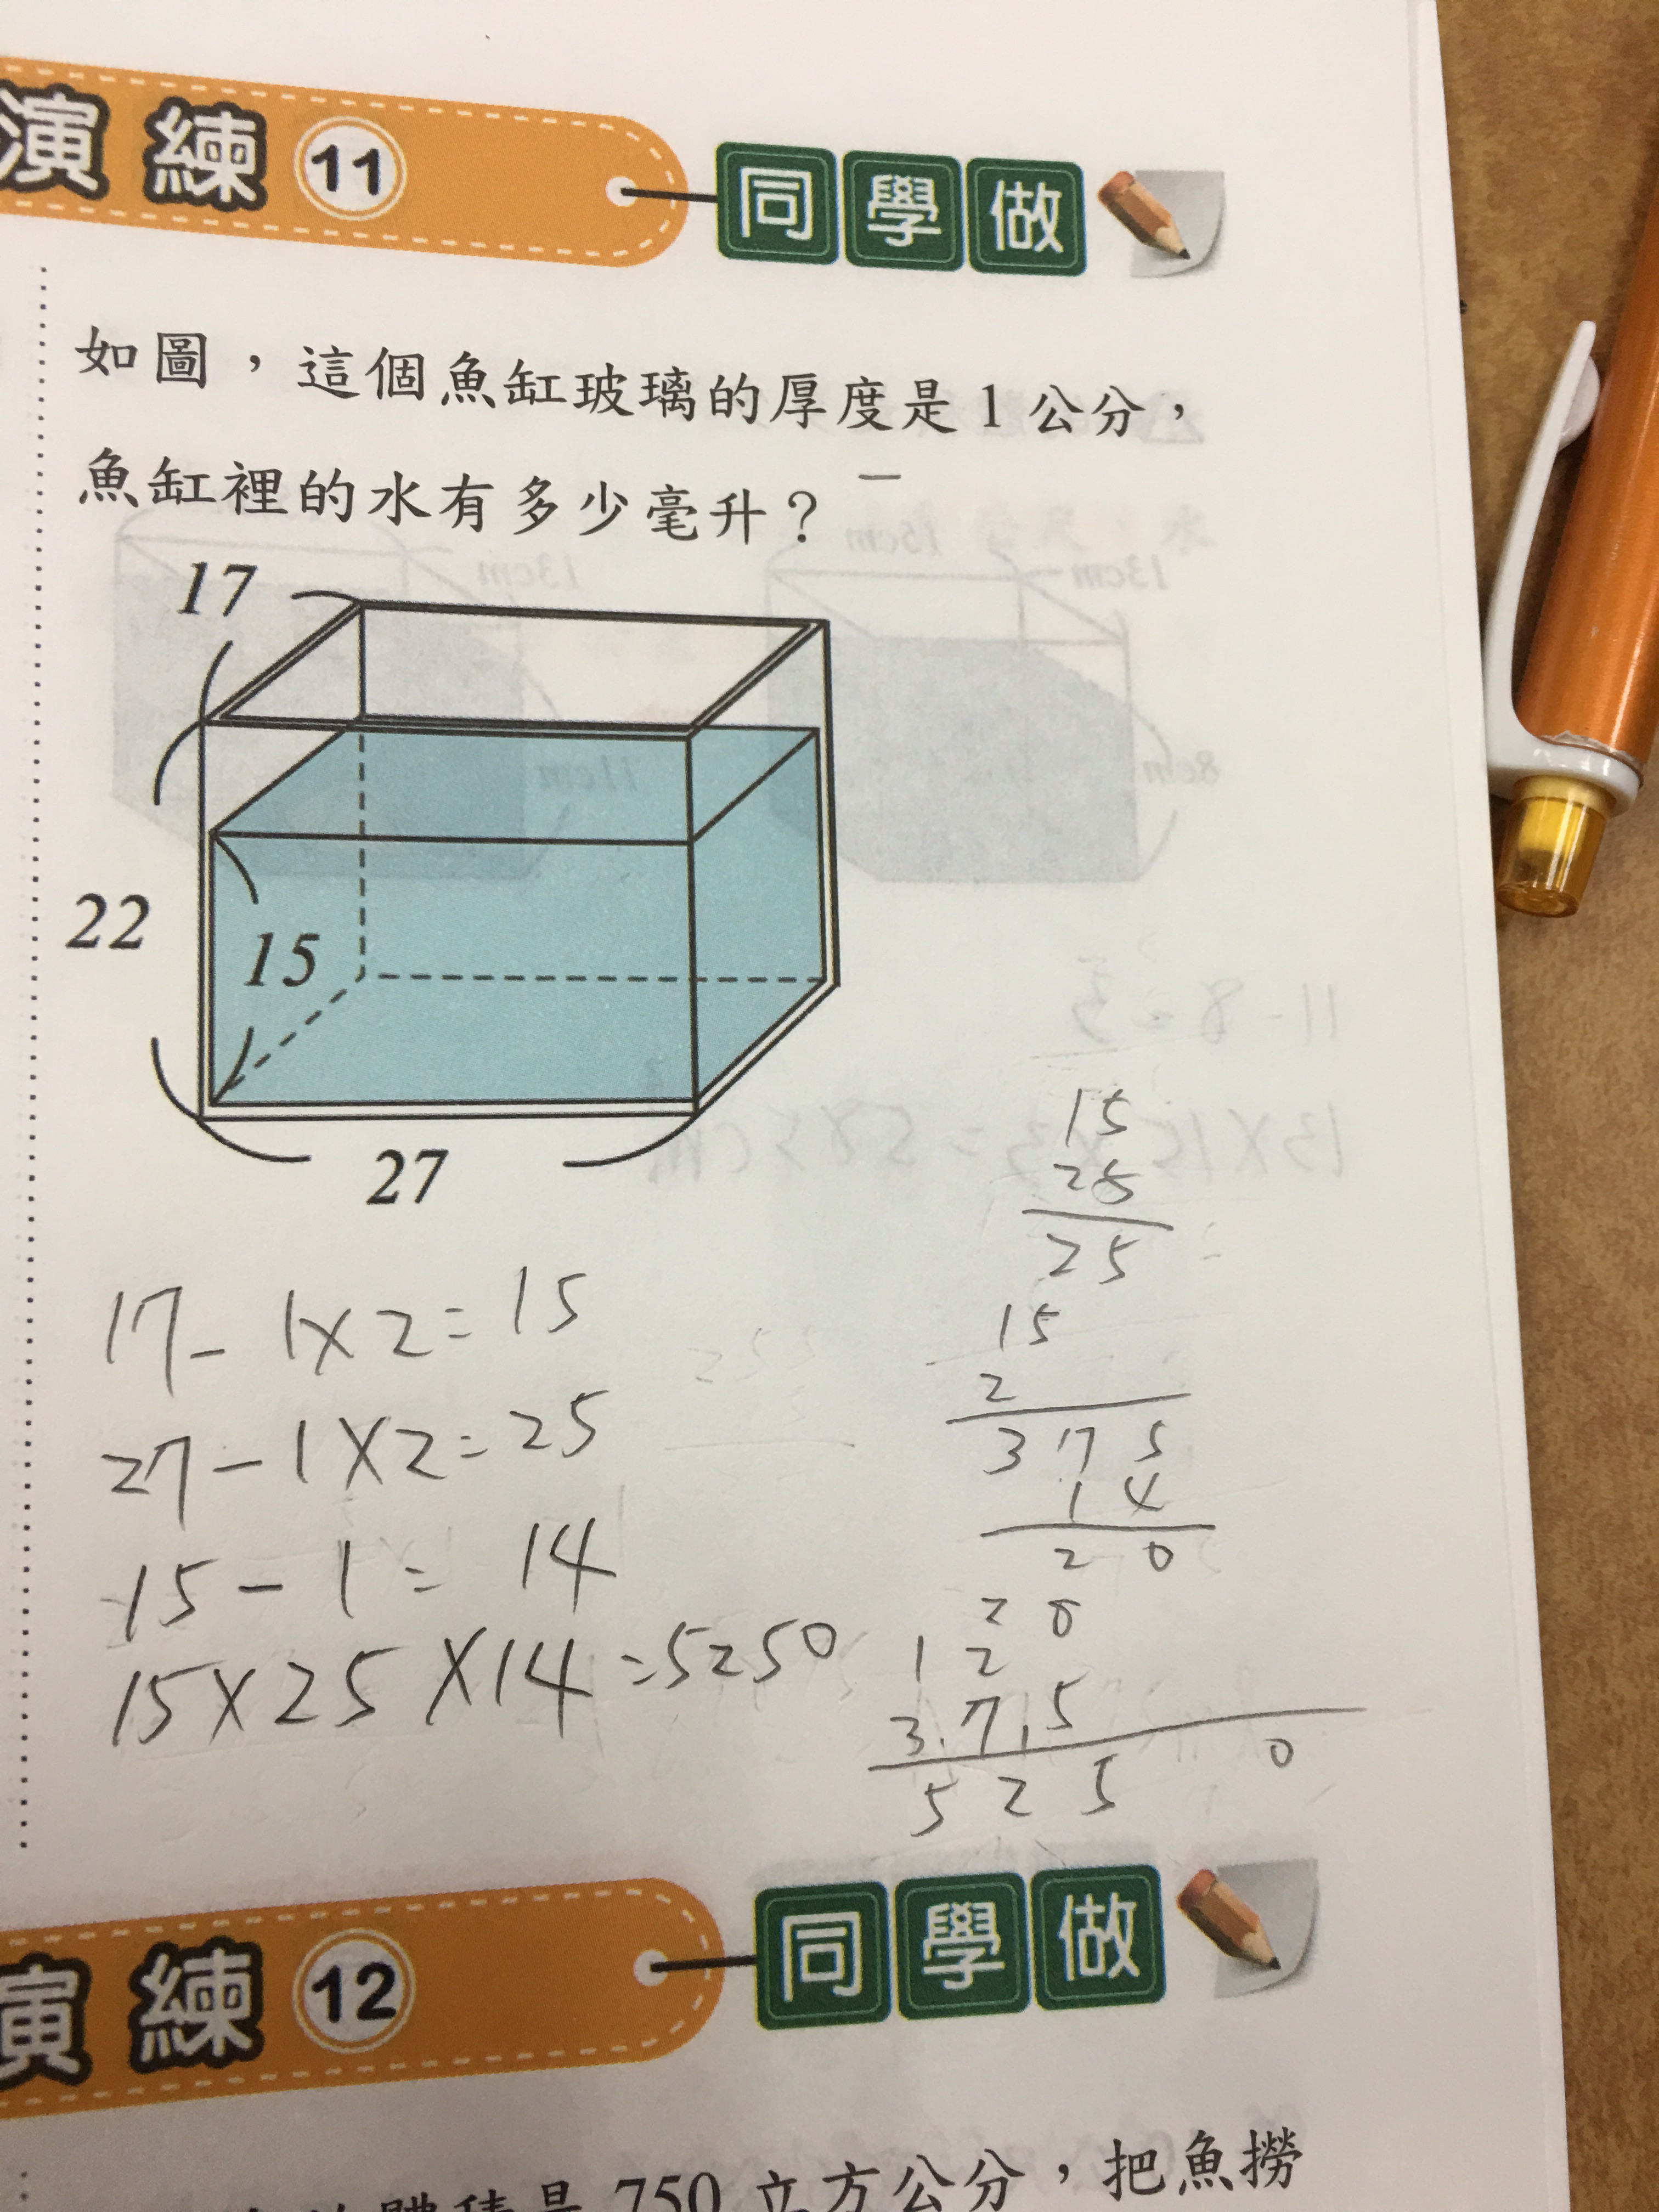 演練 11 同學做
如圖，這個魚缸玻璃的厚度是1公分，
魚缸裡的水有多少毫升？
17
22
15
27
17-1×2=15
27-1×2=25
15-1=14
15×25×14=5250
15
25
25
15
2
3 7 5
1 4
2 0
2 8
1 2
3 7 5
5 2 5 0
演練 12 同學做
750立方公分，把魚撈